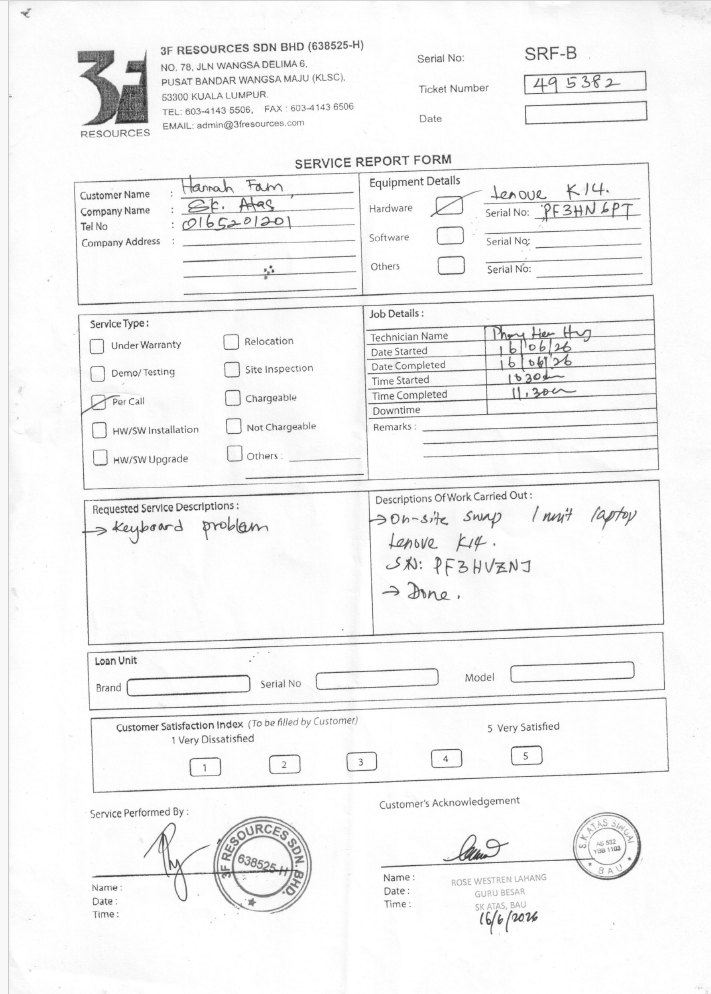 3F
RESOURCES
3F RESOURCES SDN BHD (638525-H)
NO. 78, JLN WANGSA DELIMA 6,
PUSAT BANDAR WANGSA MAJU (KLSC),
53300 KUALA LUMPUR.
TEL: 603-4143 5506, FAX : 603-4143 6506
EMAIL: admin@3fresources.com
Serial No: SRF-B
Ticket Number 495382
Date
SERVICE REPORT FORM
Customer Name : Hannah Fam
Company Name : SK. Atas
Tel No : 0165201201
Company Address :
Equipment Details
Hardware Lenove K14.
Serial No: PF3HN6PT
Software Serial No:
Others Serial No:
Service Type :
Under Warranty
Relocation
Demo/ Testing
Site Inspection
Per Call
Chargeable
HW/SW Installation
Not Chargeable
HW/SW Upgrade
Others :
Job Details :
Technician Name
Date Started 16/06/26
Date Completed 16/06/26
Time Started 1030am
Time Completed 11.30am
Downtime
Remarks :
Requested Service Descriptions :
→ Keyboard problem
Descriptions Of Work Carried Out :
→ On-site swap 1 unit laptop
Lenove K14.
S/N: PF3HVZNJ
→ Done.
Loan Unit
Brand
Serial No
Model
Customer Satisfaction Index (To be filled by Customer)
1 Very Dissatisfied
5 Very Satisfied
1 2 3 4 5
Service Performed By :
3F RESOURCES SDN. BHD.
638525-H
Name :
Date :
Time :
Customer's Acknowledgement
S.K ATAS SINGAI
BAU
Name : ROSE WESTREN LAHANG
Date : GURU BESAR
Time : SK ATAS, BAU
16/6/2026